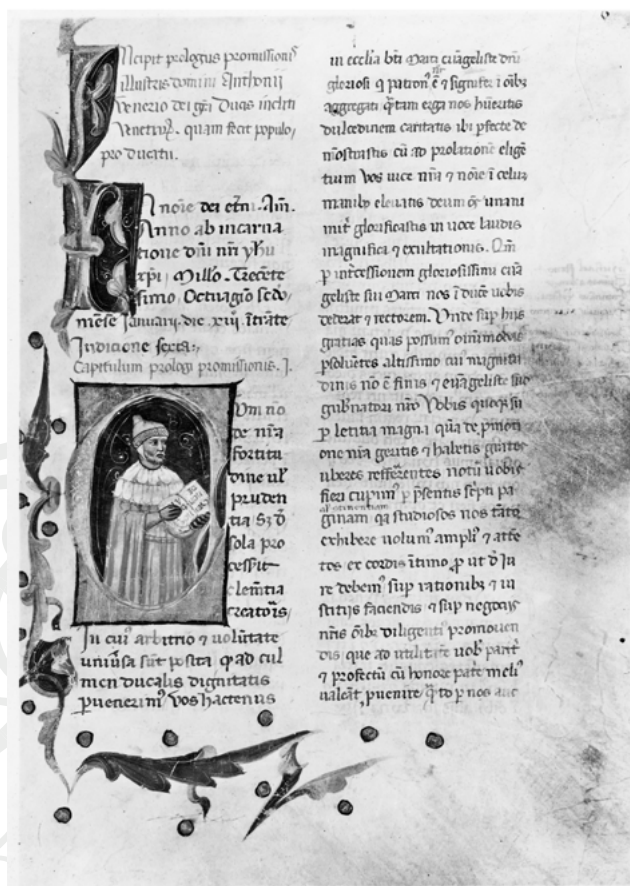 Incipit prologus promissionis
illustris domini Anthonij
Venerio dei gr̃a Ducis incliti
Venetiaꝝ. quam fecit populo,
pro ducatu.
In noi͂e dei et͂ni. Am͂.
Anno ab incarna
tione dn͂i nr͂i yh͂u
xp͂i, Millo. Trecente
simo, Octuagi͂o sc͂do,
me͂se Januarij. die. xiij. i͂tra͂te
Indicione sexta;
Capitulum prologi promissionis. I.
Cum no͂
de nr͂a
fortitu
dine ul̕
pruden
tia S; d̕
sola pro
cessit
clem͂tia
creatoris,
In cui᷒ arbitrio ⁊ volu͂tate
uniu͂sa su͂t posita. q̕ ad cul
men ducalis dignitatis
ꝑuenerim᷒, vos hactenus
in ecc͂lia bt͂i Marci eua͂geliste dn͂i
gloriosi
aggregati q͂tam erga nos hu͂eritis
dulcedinem caritatis ibi ꝑfecte de
mo͂strastis cu͂ ad prolatione͂ elige͂
tium vos uice nr͂a ⁊ noi͂e i͂ celu͂
manib; eleuatis deum
mit͂ glorificastis in uoce laudis
magnifica ⁊ exultationis.
p͂ int͂cessionem gloriosissimi eua͂
geliste sui Marci nos i͂ duce͂ uobis
dederat ⁊ rectorem. Unde sup͂ hijs
gratias quas possum᷒
ꝑsoluentes altissimo cui᷒ magnitu
dinis no͂ e͂ finis ⁊ eua͂geliste suo
gub͂natori nr͂o Vobis
p̱ letitia magna qua͂ de, ꝓmoti
one nr̃a geritis ⁊ habetis gra͂tes
uberes refferentes notu͂ uobis
fieri cupim᷒ ꝑ p͂sentis sc͂pti pa
ginam
exhibere uolum᷒
tos ex cordis i͂timo ꝓ ut d̕ iu
re debem᷒ sup͂ rationib; ⁊ iu
stitijs faciendis ⁊ sup͂ negocijs
nr͂is oi͂b; diligent͂ promouen
dis que ad utilitate͂ uob̕
⁊ profectu͂ cu͂ honore meli᷒
ualeat ꝑuenire